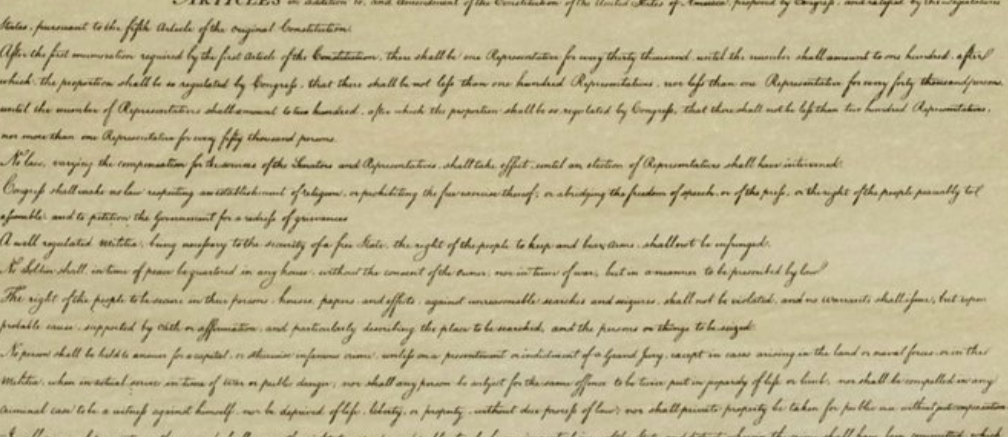 ARTICLES in addition to, and Amendment of the Constitution of the United States of America, proposed by Congress, and ratified by the Legislatures
States, pursuant to the fifth Article of the original Constitution.
After the first enumeration required by the first Article of the Constitution, there shall be one Representative for every thirty thousand, until the number shall amount to one hundred, after
which, the proportion shall be so regulated by Congress, that there shall be not less than one hundred Representatives, nor less than one Representative for every forty thousand persons,
until the number of Representatives shall amount to two hundred, after which the proportion shall be so regulated by Congress, that there shall not be less than two hundred Representatives,
nor more than one Representative for every fifty thousand persons.
No law, varying the compensation for the services of the Senators and Representatives, shall take effect, until an election of Representatives shall have intervened.
Congress shall make no law respecting an establishment of religion, or prohibiting the free exercise thereof; or abridging the freedom of speech, or of the press, or the right of the people peaceably to
assemble, and to petition the Government for a redress of grievances
A well regulated Militia, being necessary to the security of a free State, the right of the people to keep and bear Arms, shall not be infringed.
No Soldier shall, in time of peace be quartered in any house, without the consent of the owner, nor in time of war, but in a manner to be prescribed by law
The right of the people to be secure in their persons, houses, papers, and effects, against unreasonable searches and seizures, shall not be violated, and no Warrants shall issue, but upon
probable cause, supported by oath or affirmation, and particularly describing the place to be searched, and the persons or things to be seized.
No person shall be held to answer for a capital, or otherwise infamous crime, unless on a presentment or indictment of a Grand Jury, except in cases arising in the land or naval forces, or in the
Militia, when in actual service in time of War or public danger; nor shall any person be subject for the same offence to be twice put in jeopardy of life or limb, nor shall be compelled in any
criminal case to be a witness against himself, nor be deprived of life, liberty, or property, without due process of law; nor shall private property be taken for public use without just compensation